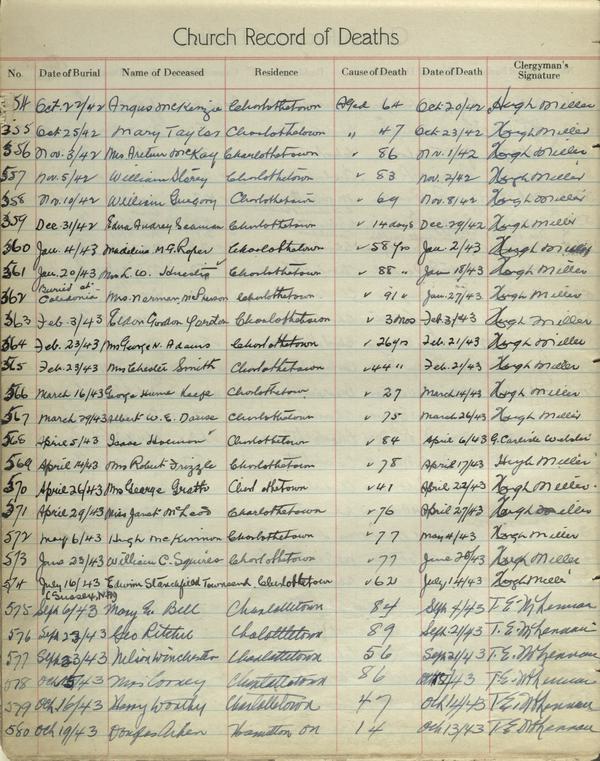 Church Record of Deaths
No. Date of Burial Name of Deceased Residence Cause of Death Date of Death Clergyman's Signature
354 Oct. 22/42 Angus McKenzie Charlottetown Aged 64 Oct 20/42 Hugh Miller
355 Oct 25/42 Mary Taylor Charlottetown " 47 Oct 23/42 Hugh Miller
356 Nov. 3/42 Mrs Arthur McKay Charlottetown " 86 Nov. 1/42 Hugh Miller
357 Nov. 5/42 William Charlottetown " 83 Nov. 2/42 Hugh Miller
358 Nov. 10/42 William Gregory Charlottetown " 69 Nov. 8/42 Hugh Miller
359 Dec. 31/42 Edna Audrey Seaman Charlottetown " 14 days Dec. 29/42 Hugh Miller
360 Jan. 4/43 Madeline M.G. Roper Charlottetown " 58 yrs Jan. 2/43 Hugh Miller
361 Jan. 20/43 Mrs L. W. Charlottetown " 88 " Jan 18/43 Hugh Miller
Buried at
362 Caledonia Mrs. Norman McPherson Charlottetown " 91 " Jan. 27/43 Hugh Miller
363 Feb. 3/43 Eldon Gordon Charlottetown " 3 mos Feb. 3/43 Hugh Miller
364 Feb. 23/43 Mrs George N. Adams Charlottetown " 26 yrs Feb. 21/43 Hugh Miller
365 Feb. 23/43 Mrs Chester Smith Charlottetown " 44 " Feb. 21/43 Hugh Miller
366 March 16/43 George Hume Charlottetown " 27 March 14/43 Hugh Miller
367 March 29/43 Albert W. E. Charlottetown " 75 March 26/43 Hugh Miller
568 April 5/43 Isaac Charlottetown " 84 April 6/43 G. Carlisle Webster
569 April 14/43 Mrs Robert Frizzle Charlottetown " 78 April 17/43 Hugh Miller
570 April 26/43 Mrs George Gratto Charlottetown " 41 April 22/43 Hugh Miller
571 April 29/43 Miss Janet McLeod Charlottetown " 76 April 27/43 Hugh Miller
572 May 6/43 Hugh McKinnon Charlottetown " 77 May 4/43 Hugh Miller
573 June 23/43 William C. Squires Charlottetown " 77 June 20/43 Hugh Miller
574 July 16/43 Edwin Stanchfield Townsend Charlottetown " 62 July 14/43 Hugh Miller
(Sussex, N.B.)
575 Sept 6/43 Mary E. Bell Charlottetown 84 Sept. 4/43 T. E. McLennan
576 Sept 23/43 Geo Ritchie Charlottetown 89 Sept. 21/43 T. E. McLennan
577 Sept 23/43 Nelson Winchester Charlottetown 56 Sept 21/43 T. E. McLennan
578 Oct 15/43 Mrs Charlottetown 86 Oct T. E. McLennan
579 Oct 16/43 Harry Worthy Charlottetown 47 Oct 14/43 T. E. McLennan
580 Oct 19/43 Douglas Aiken Hamilton On 14 Oct 13/43 T. E. McLennan